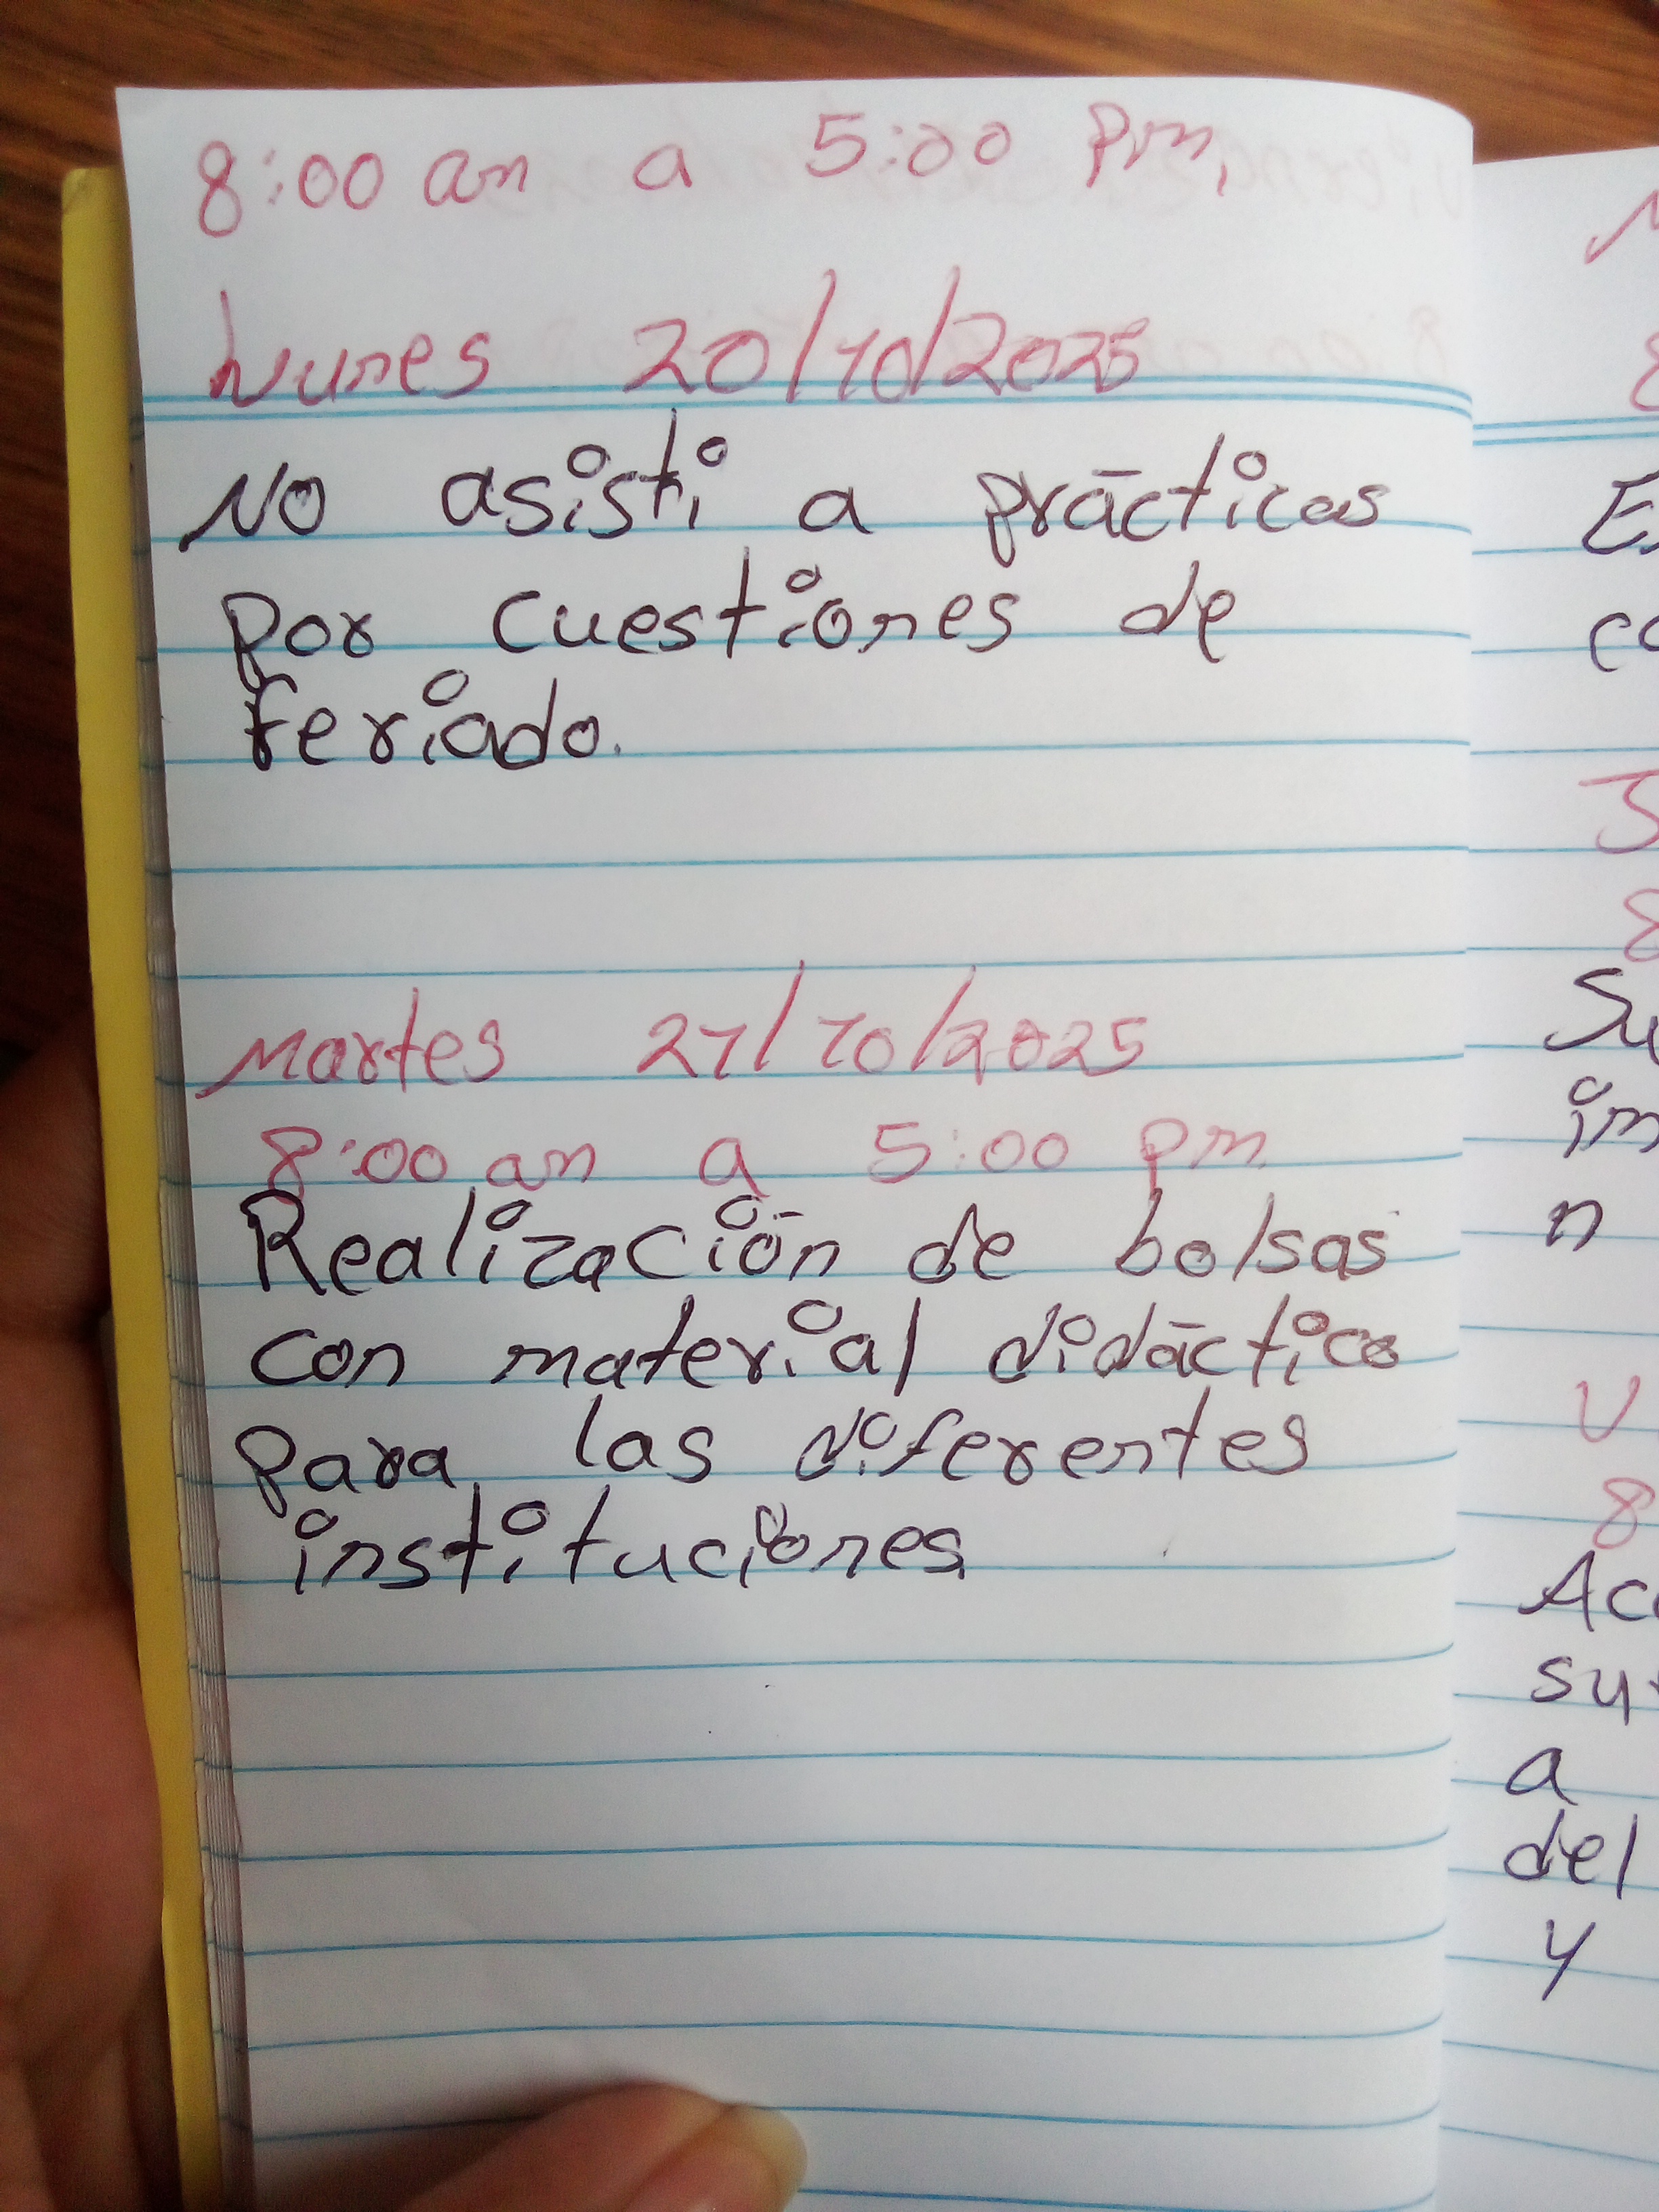 8:00 am a 5:00 pm,
Lunes 20/10/2025
No asisti a prácticas
por cuestiones de
feriado.
Martes 21/10/2025
8:00 am a 5:00 pm
Realización de bolsas
con material didáctico
para las diferentes
instituciones.
Su
im
n
V
8
Acc
a
del
y